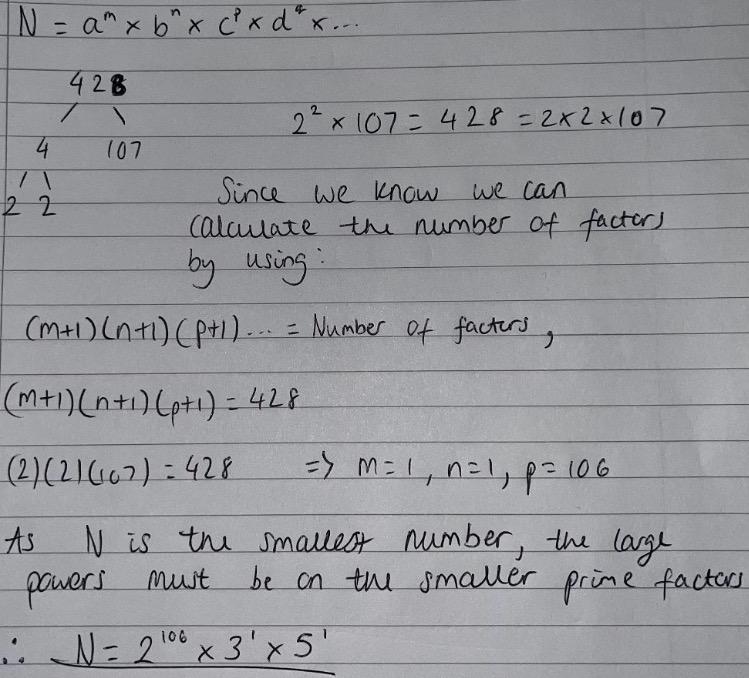 N = aᵐ × bⁿ × cᵖ × d^q × ...
428
4 107
2 2
2² × 107 = 428 = 2×2×107
Since we know we can
calculate the number of factors
by using:
(m+1)(n+1)(p+1)... = Number of factors,
(m+1)(n+1)(p+1) = 428
(2)(2)(107) = 428 => m=1, n=1, p=106
As N is the smallest number, the large
powers must be on the smaller prime factors
∴ N = 2¹⁰⁶ × 3¹ × 5¹